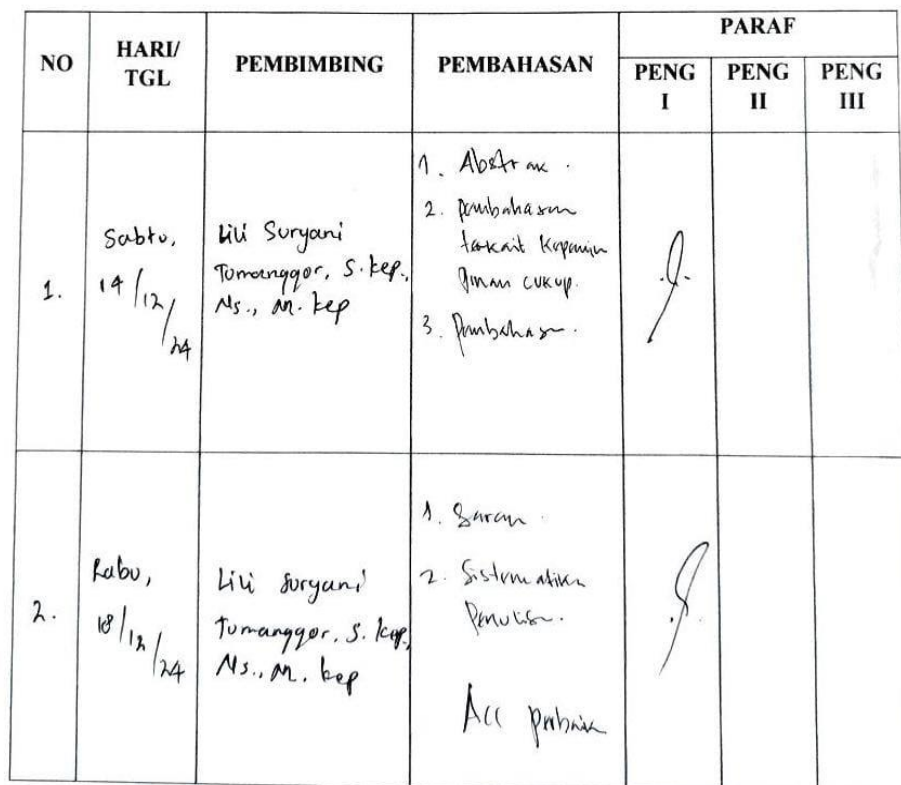 NO
HARI/
TGL
PEMBIMBING
PEMBAHASAN
PARAF
PENG
I
PENG
II
PENG
III
1.
Sabtu,
14/12/24
Lili Suryani
Tumanggor, S. kep.,
Ns., M. kep
1. Abstrak.
2. pembahasan
terkait
cukup.
3. Pembahasan.
2.
Rabu,
18/12/24
Lili Suryani
Tumanggor, S. kep,
Ns., M. kep
1. Saran.
2. Sistematika
Penulisan.
Acc